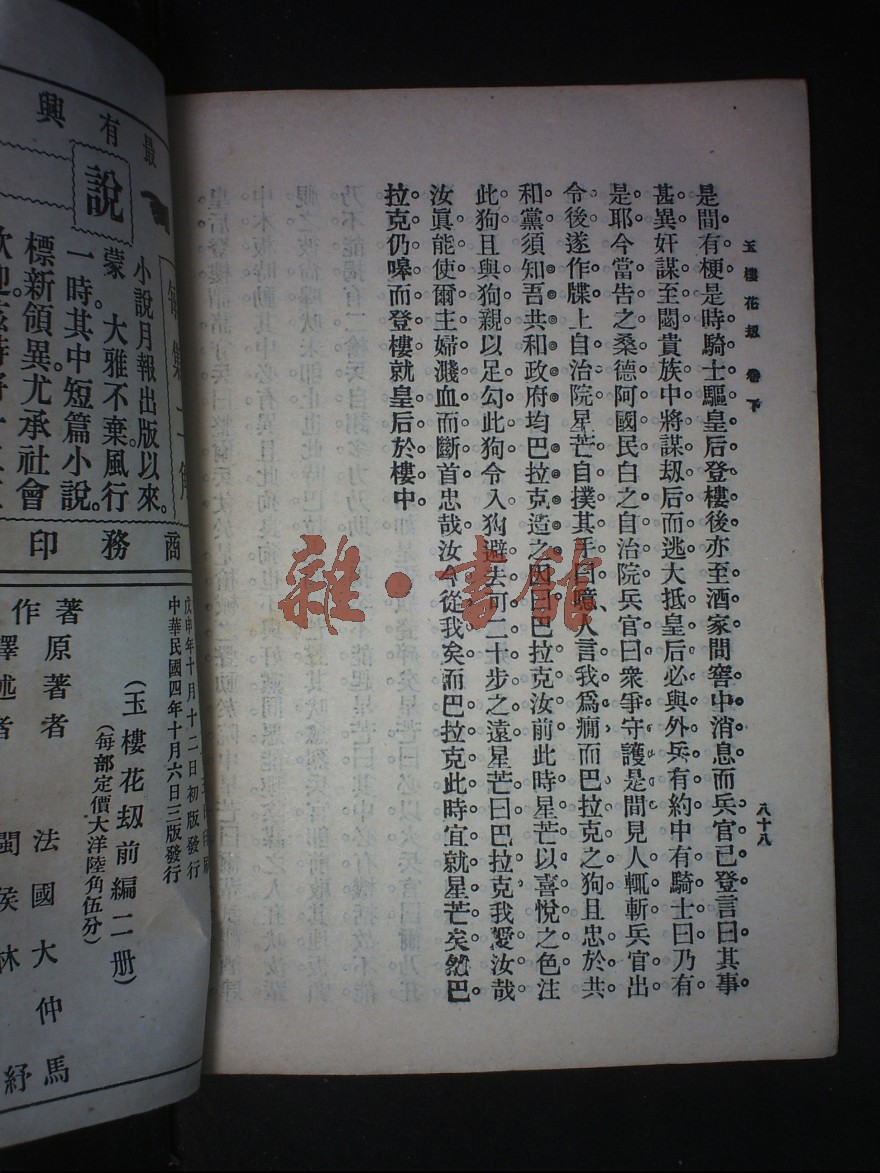 玉樓花刼 卷下
八十八
是間有梗。是時騎士驅皇后登樓後。亦至酒家間窖中消息。而兵官已登言曰。其事
甚異。奸謀至闊。貴族中將謀刼后而逃。大抵皇后必與外兵有約。中有騎士曰。乃有
是耶。今當告之桑德阿。國民白之自治院。兵官曰。衆爭守護是間。見人輒斬。兵官出
令後。遂作牒上自治院。星芒自撲其手曰。噫、人言我爲癇。而巴拉克之狗。且忠於共
和黨。須知吾共和政府。均巴拉克造之。因曰。巴拉克汝前。此時星芒以喜悅之色注
此狗。且與狗親。以足勾此狗令入。狗避去可二十步之遠。星芒曰。巴拉克我愛汝哉。
汝眞能使爾主婦濺血而斷首。忠哉。汝今從我矣。而巴拉克此時宜就星芒矣。然巴
拉克仍嗥而登樓。就皇后於樓中。
最有興
說
小說月報出版以來。
蒙 大雅不棄風行
一時其中短篇小說。
標新領異尤承社會
商務印
戊申年十月十二日初版發行
中華民國四年十月六日三版發行
(玉樓花刼前編二册)
(每部定價大洋陸角伍分)
原著者 法國大仲馬
譯述者 閩侯林紓
著作
雜·書館